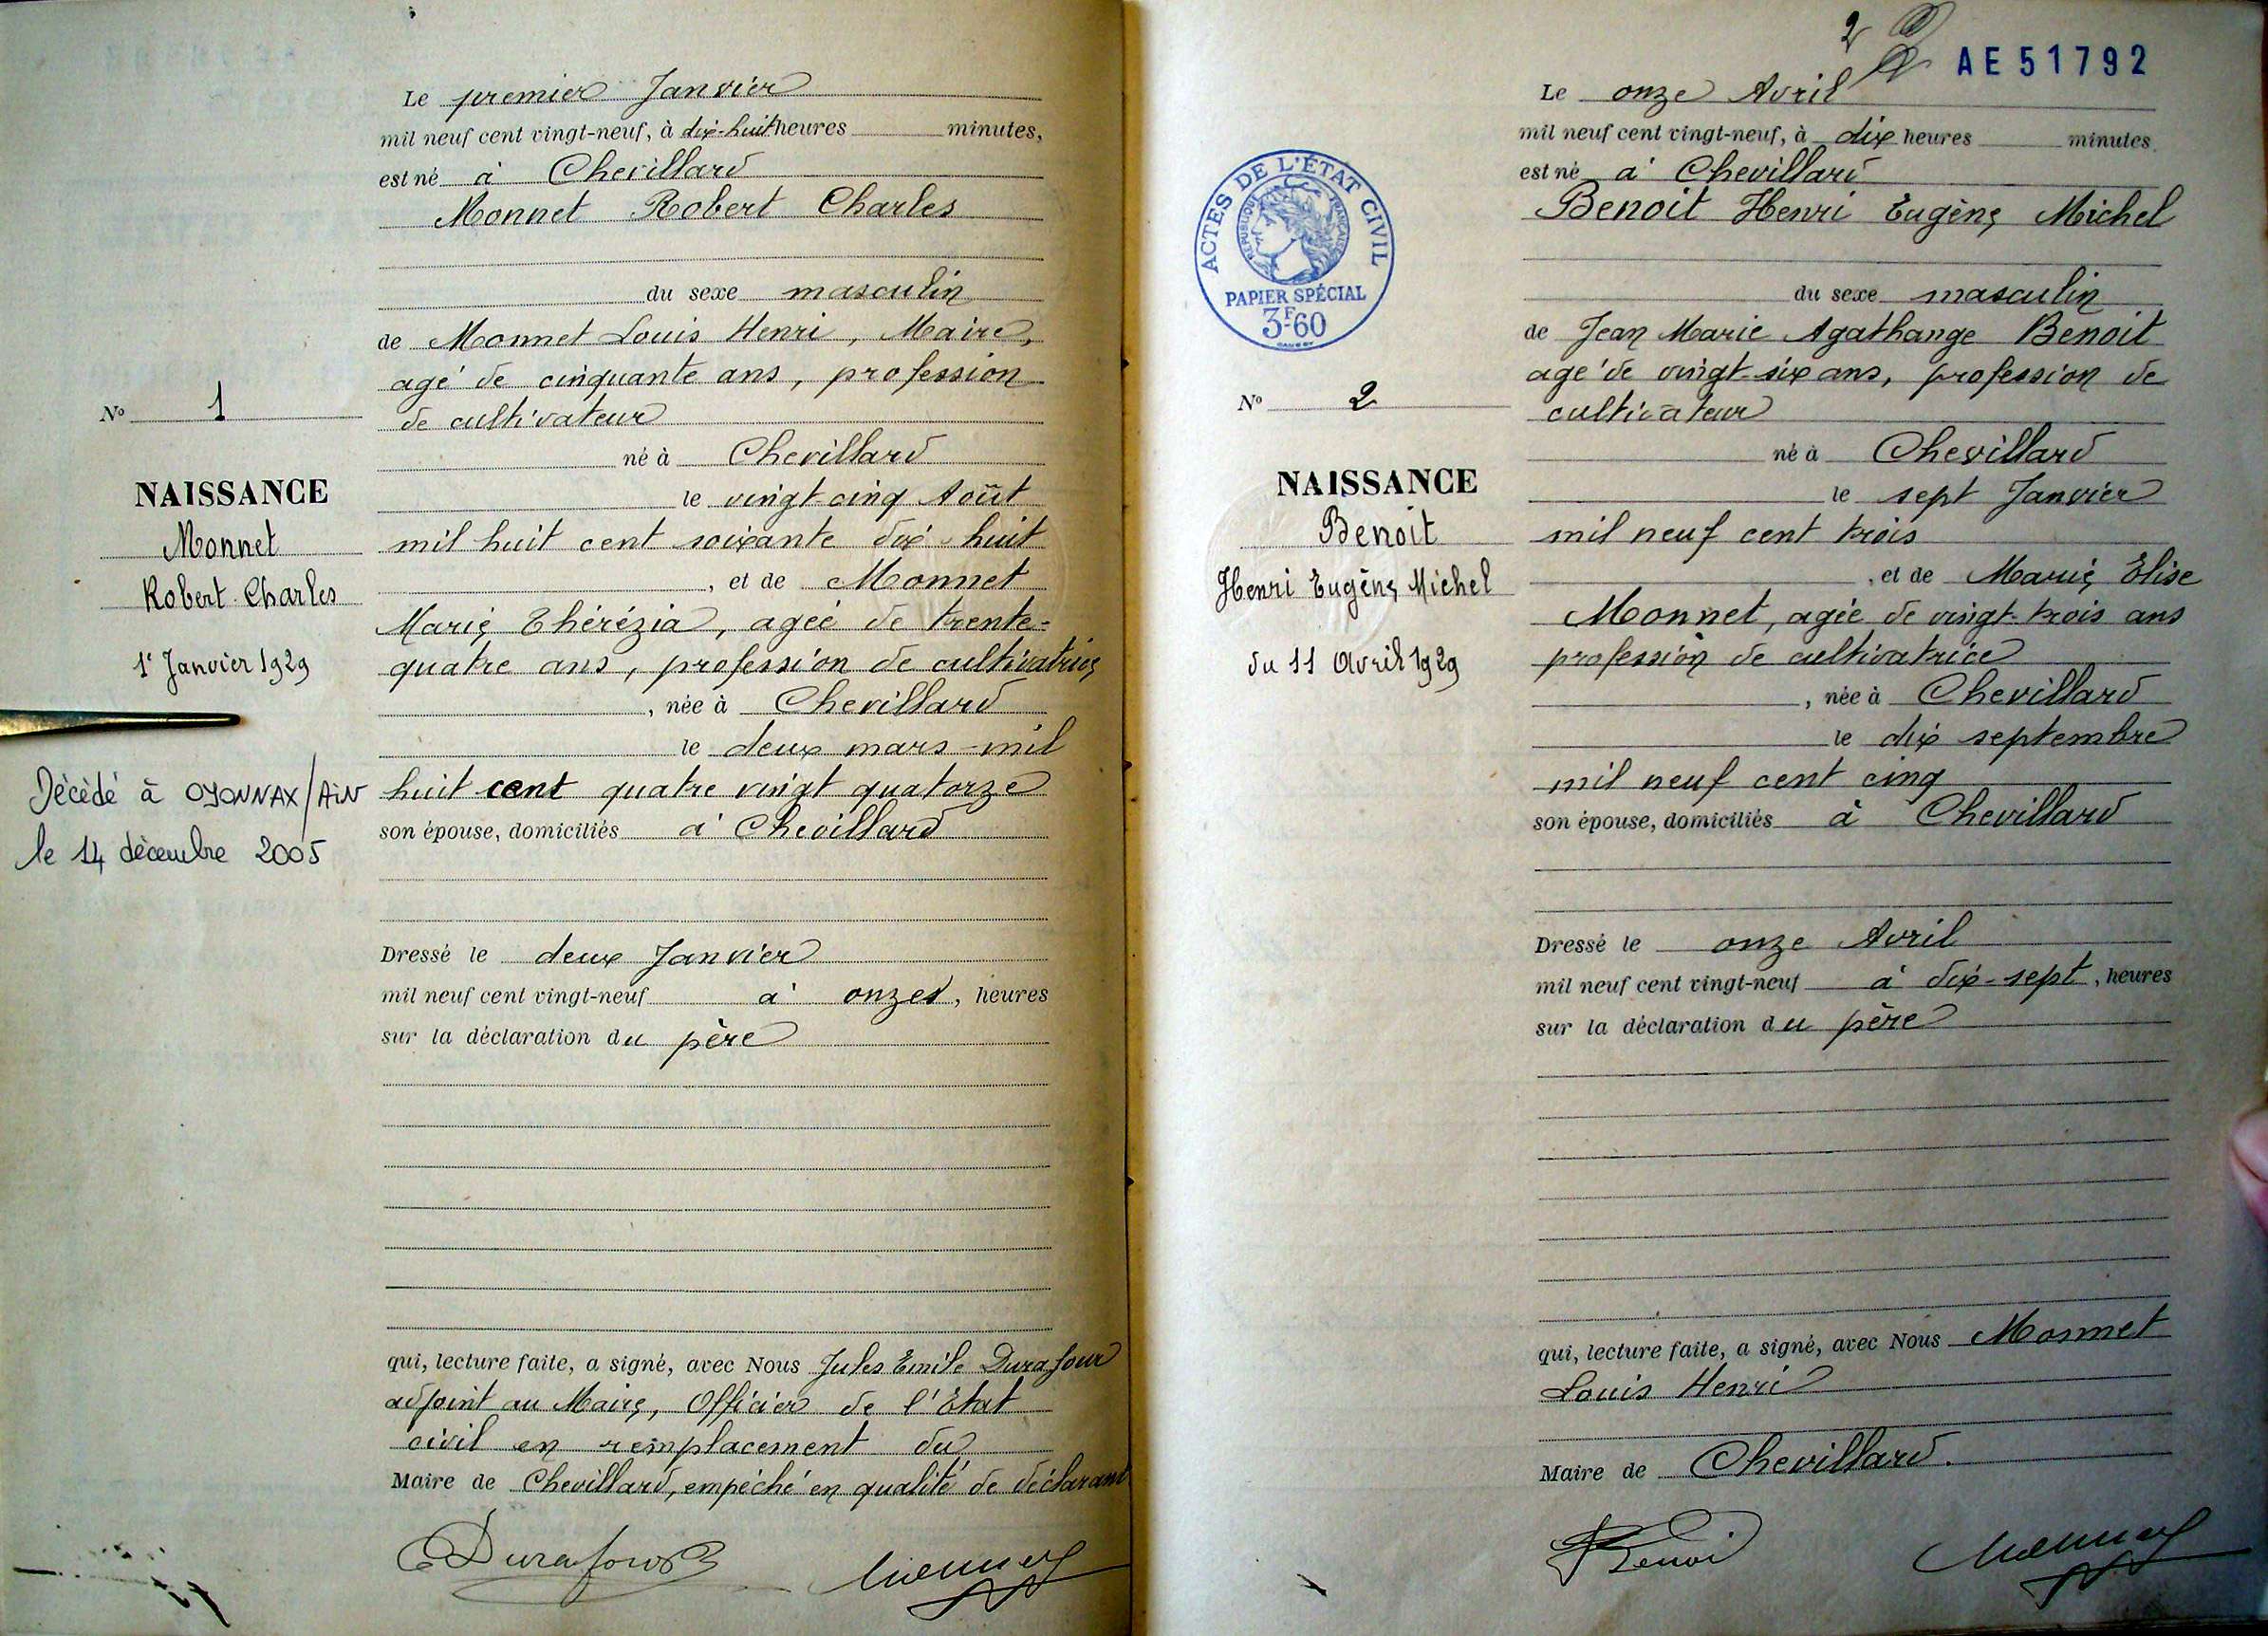 Le premier Janvier
mil neuf cent vingt-neuf, à dix-huit heures minutes,
est né à Chevillard
Monnet Robert Charles
du sexe masculin
de Monnet Louis Henri, Maire,
agé de cinquante ans, profession
de cultivateur
né à Chevillard
le vingt-cinq Août
mil huit cent soixante dix-huit
, et de Monnet
Marie Thérézia, agée de trente-
quatre ans, profession de cultivatrice
, née à Chevillard
le deux mars mil
huit cent quatre vingt quatorze
son épouse, domiciliés à Chevillard
Dressé le deux Janvier
mil neuf cent vingt-neuf à onze, heures
sur la déclaration du père
qui, lecture faite, a signé, avec Nous Jules Emile Durafour
adjoint au Maire, Officier de l'Etat
civil en remplacement du
Maire de Chevillard, empéché en qualité de déclarant
Durafour
Monnet
No 1
NAISSANCE
Monnet
Robert Charles
1er Janvier 1929
Décèdé à OYONNAX/AIN
le 14 décembre 2005
2
AE 51792
Le onze Avril
mil neuf cent vingt-neuf, à dix heures minutes
est né à Chevillard
Benoit Henri Eugène Michel
du sexe masculin
de Jean Marie Agathange Benoit
agé de vingt-six ans, profession de
cultivateur
né à Chevillard
le sept Janvier
mil neuf cent trois
, et de Marie Elise
Monnet, agée de vingt-trois ans
profession de cultivatrice
, née à Chevillard
le dix septembre
mil neuf cent cinq
son épouse, domiciliés à Chevillard
Dressé le onze Avril
mil neuf cent vingt-neuf à dix-sept, heures
sur la déclaration du père
qui, lecture faite, a signé, avec Nous Monnet
Louis Henri
Maire de Chevillard.
Benoit
Monnet
ACTES DE L'ÉTAT CIVIL
RÉPUBLIQUE FRANÇAISE
PAPIER SPÉCIAL
3F60
No 2
NAISSANCE
Benoit
Henri Eugène Michel
du 11 Avril 1929